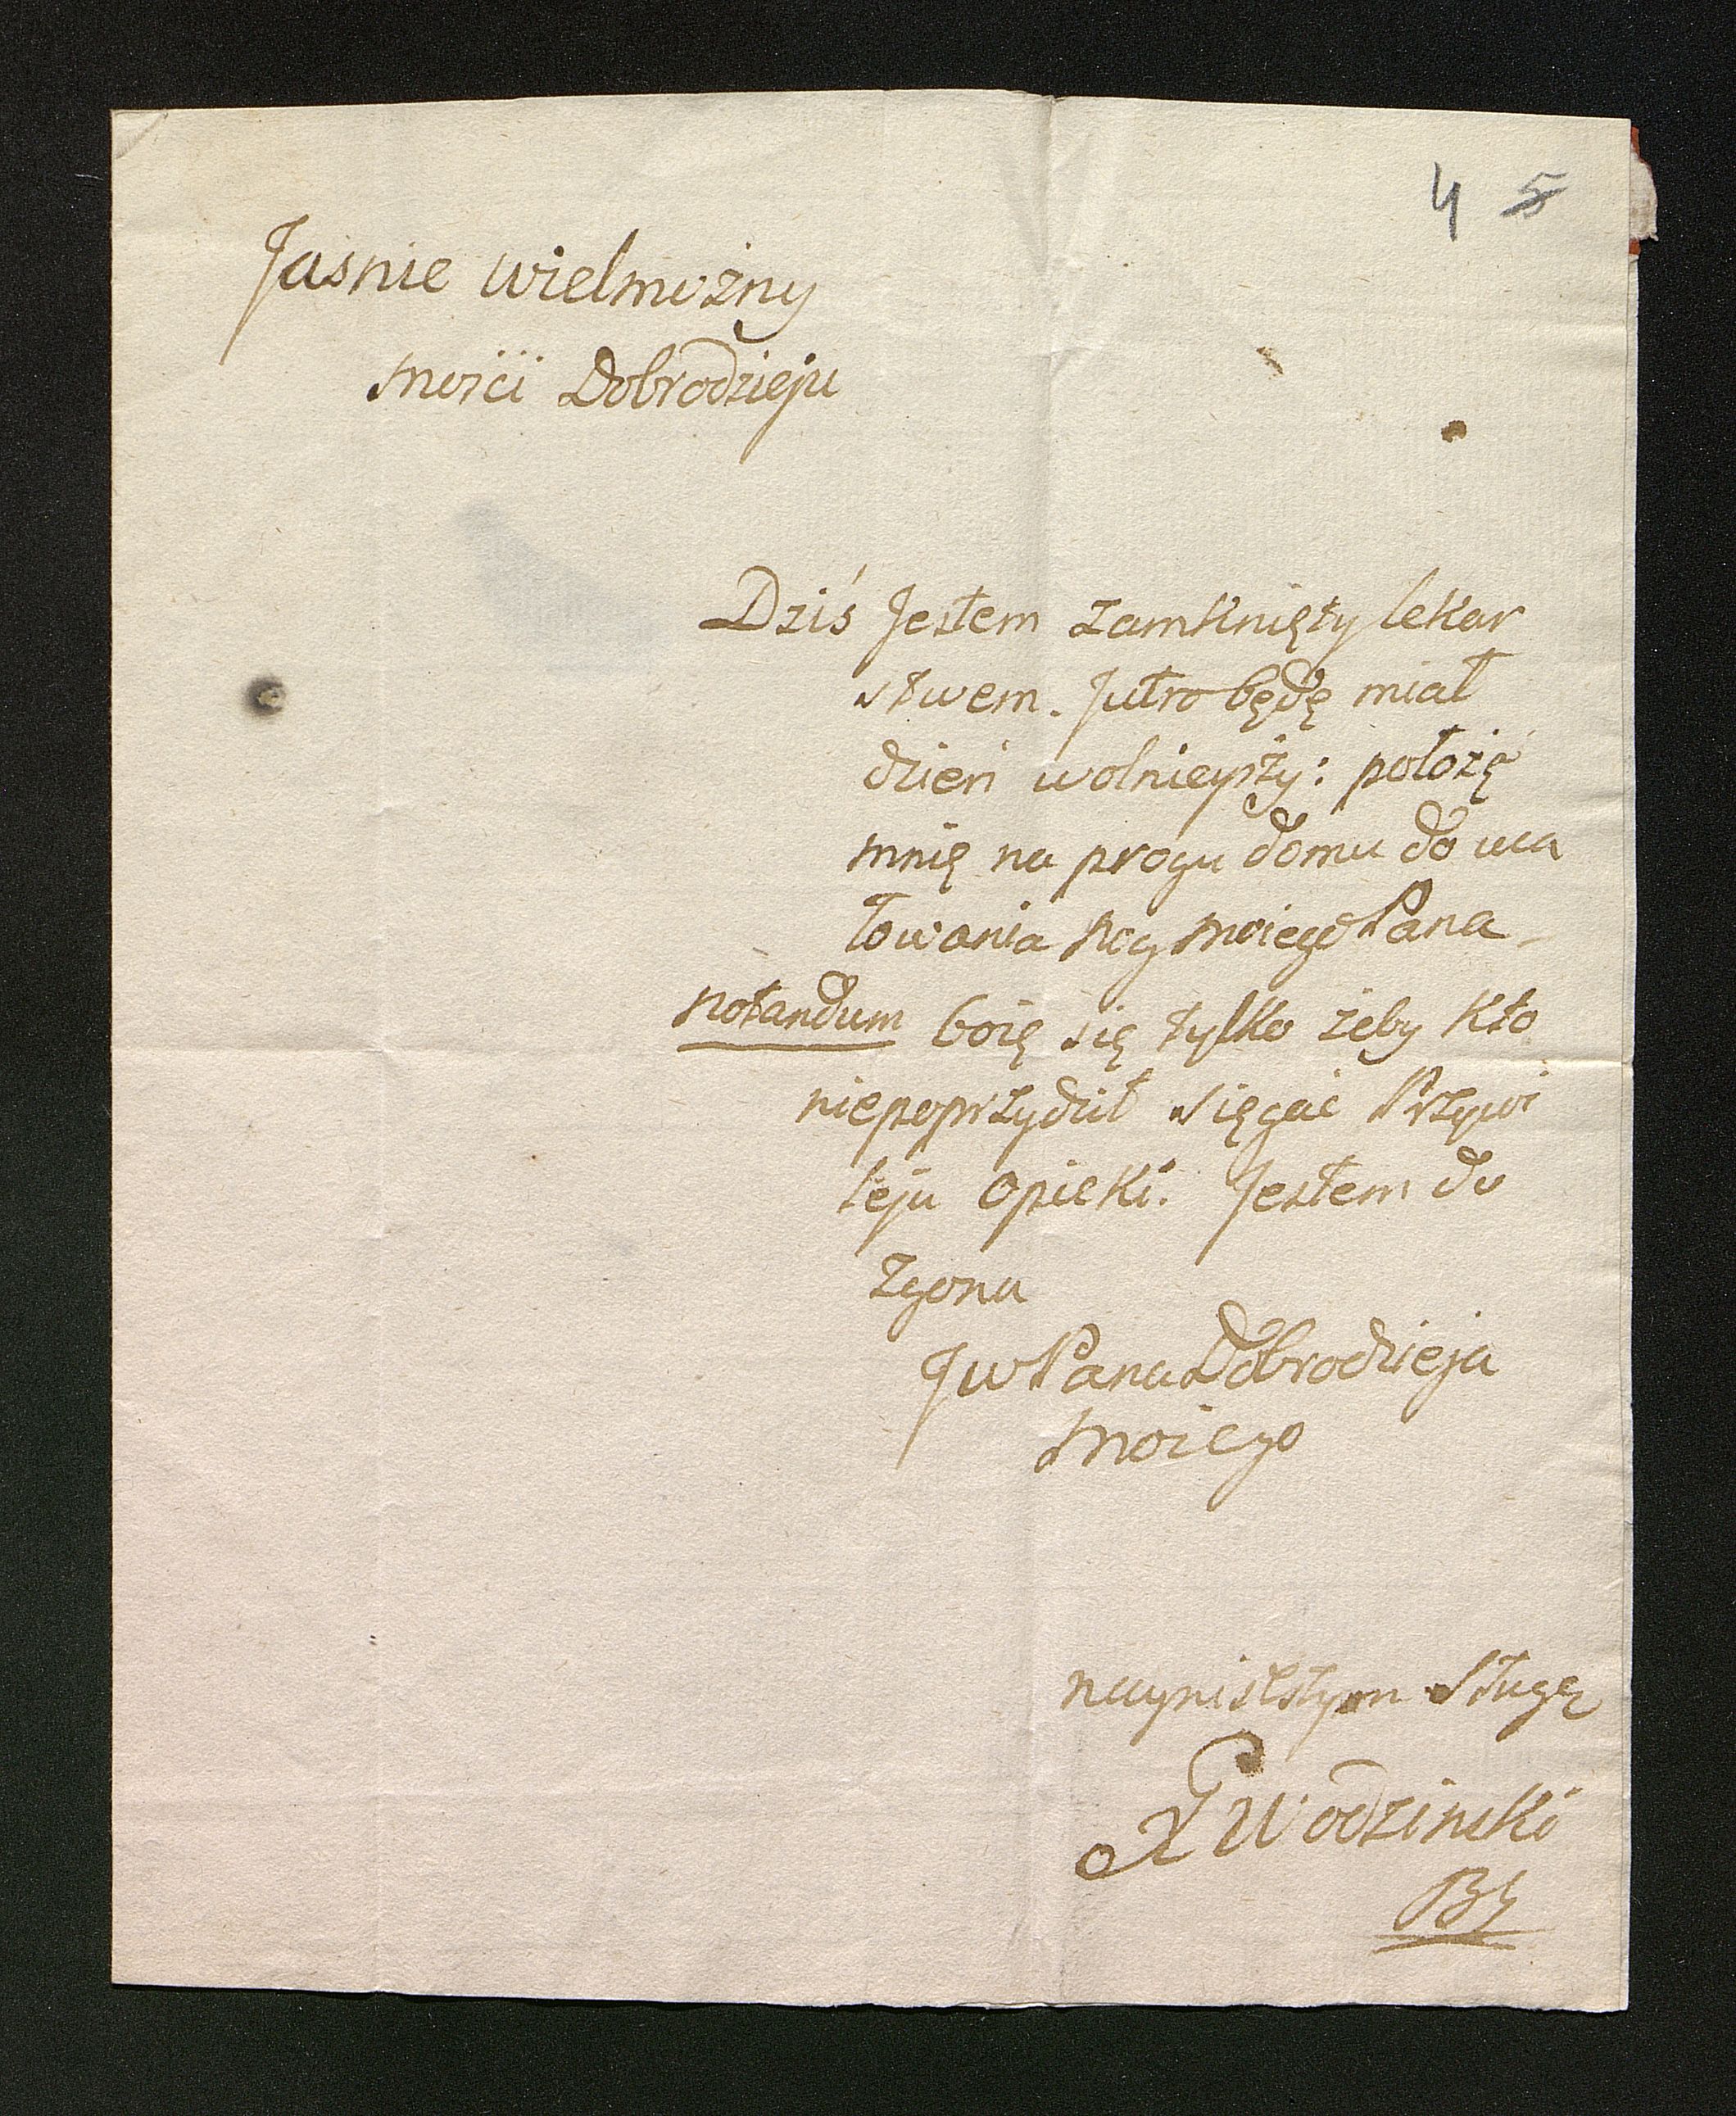 4 5
Jasnie wielmożny
Mości Dobrodzieju
Dziś Jestem zamknięty lekar
stwem. Jutro będę miał
dzień wolnieyszy: położę
mnię na progu domu do uca
łowania nog moiego Pana
notandum boię się tylko żeby kto
niepoprzydził sięgać Przywi
leju opieki. Jestem do
zgonu
JWPana Dobrodzieja
moiego
nayniższym sługą
Wodzinski